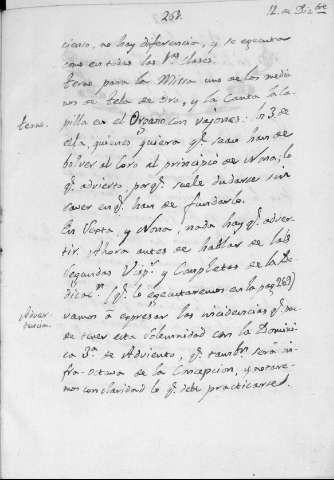 261.
12. de Dbre
cienso, no hay diferencia, y se egecuta
como en todas las Vras clases.
Terno.
Terno para la Missa uno de los media-
nos de tela de Oro, y la canta la ca-
pilla en el Organo con vajones: los 3 de
ella, quienes quiera qe. sean han de
bolver al Coro al principio de Nona, lo
qe. advierto, porqe. suele dudarse sin
saver en qe. han de fundarlo.
En Sexta, y Nona, nada hay qe. adver-
tir. Ahora antes de hablar de las
segundas Visps. y Completas de la De-
dicacn. (qe. lo egecutaremos en la pag. 263)
Adver-
tencia.
vamos á expresar las incidencias qe. pue-
de tener esta solemnidad con la Domini-
ca 3a. de Adviento, qe. tambn. será in-
fra-octava de la Concepcion, y notare-
mos con claridad lo qe. debe practicarse.